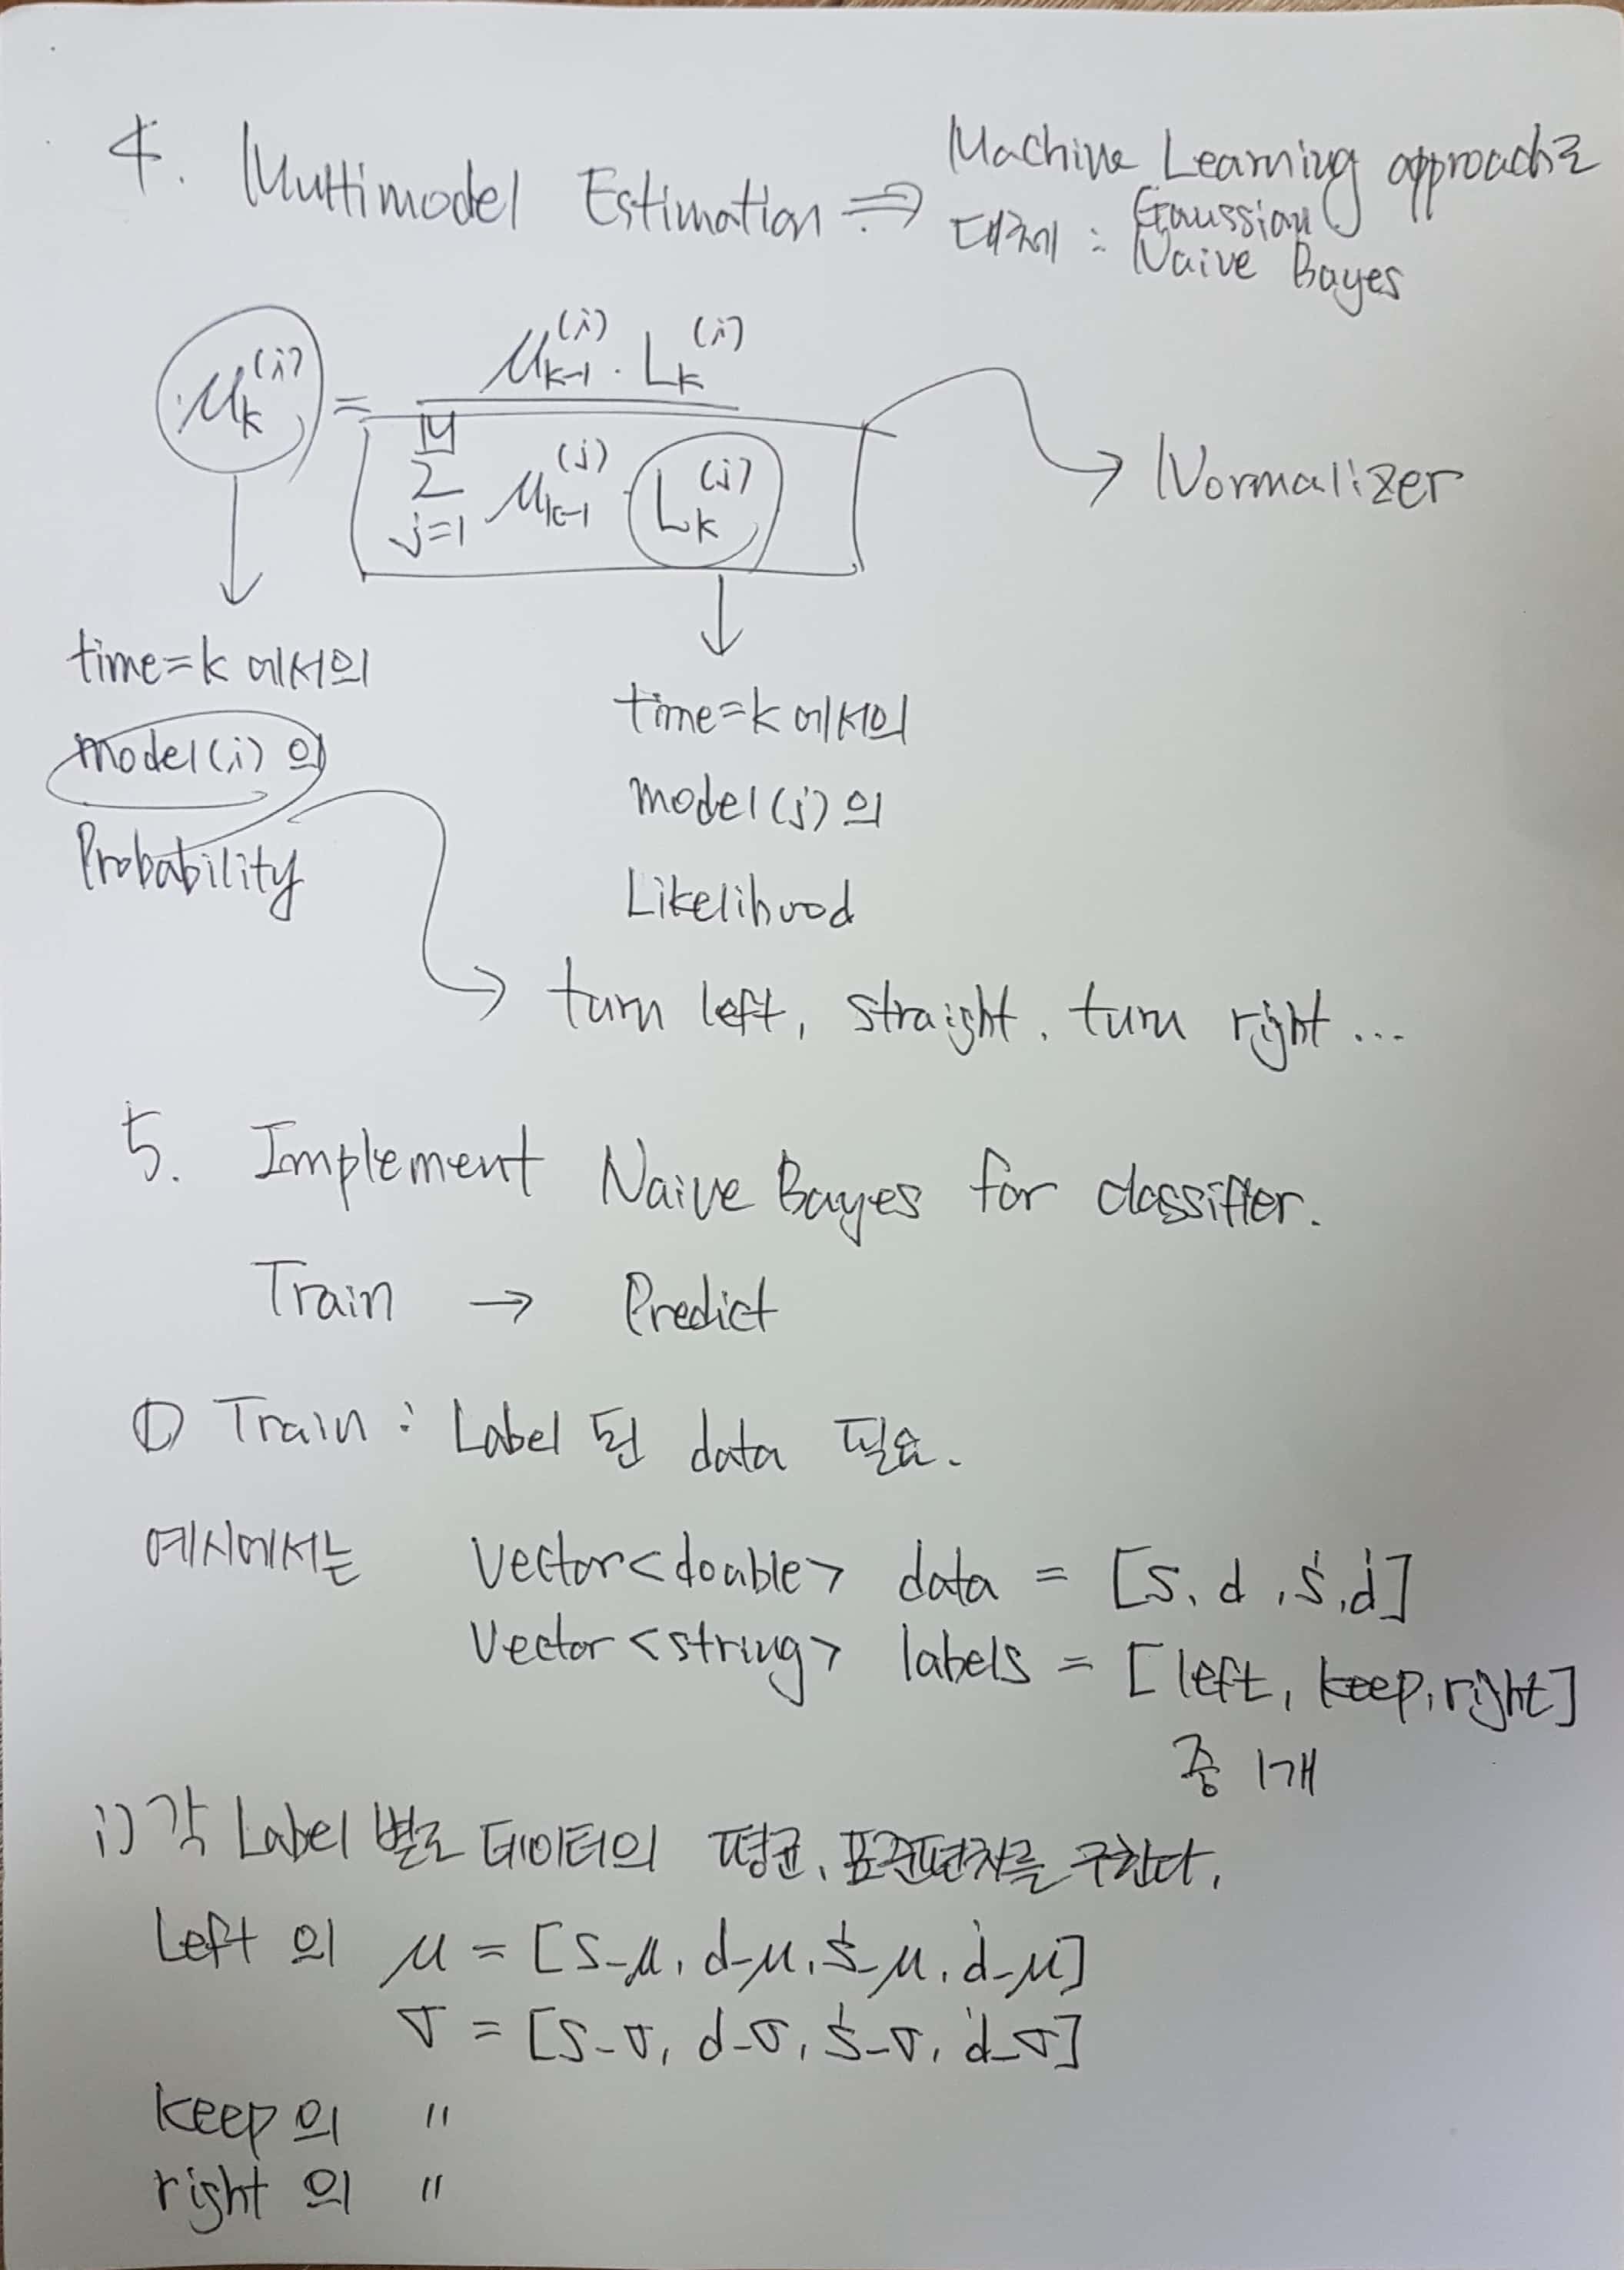 4. Multimodel Estimation ⇒ Machine Learning approach로
대체 : Gaussian
Naive Bayes
μ_k^(i) = μ_{k-1}^(i) · L_k^(i) / Σ_{j=1}^{M} μ_{k-1}^(j) · L_k^(j) → Normalizer
time=k 에서의
model(i) 의
Probability
time=k 에서의
model(j) 의
Likelihood
→ turn left, straight, turn right ...
5. Implement Naive Bayes for classifier.
Train → Predict
① Train : Label 된 data 필요.
예시에서는 Vector<double> data = [s, d, ṡ, ḋ]
Vector<string> labels = [left, keep, right]
중 1개
i) 각 Label 별로 데이터의 평균, 표준편차를 구한다.
Left 의 μ = [s_μ, d_μ, ṡ_μ, ḋ_μ]
σ = [s_σ, d_σ, ṡ_σ, ḋ_σ]
keep 의 〃
right 의 〃